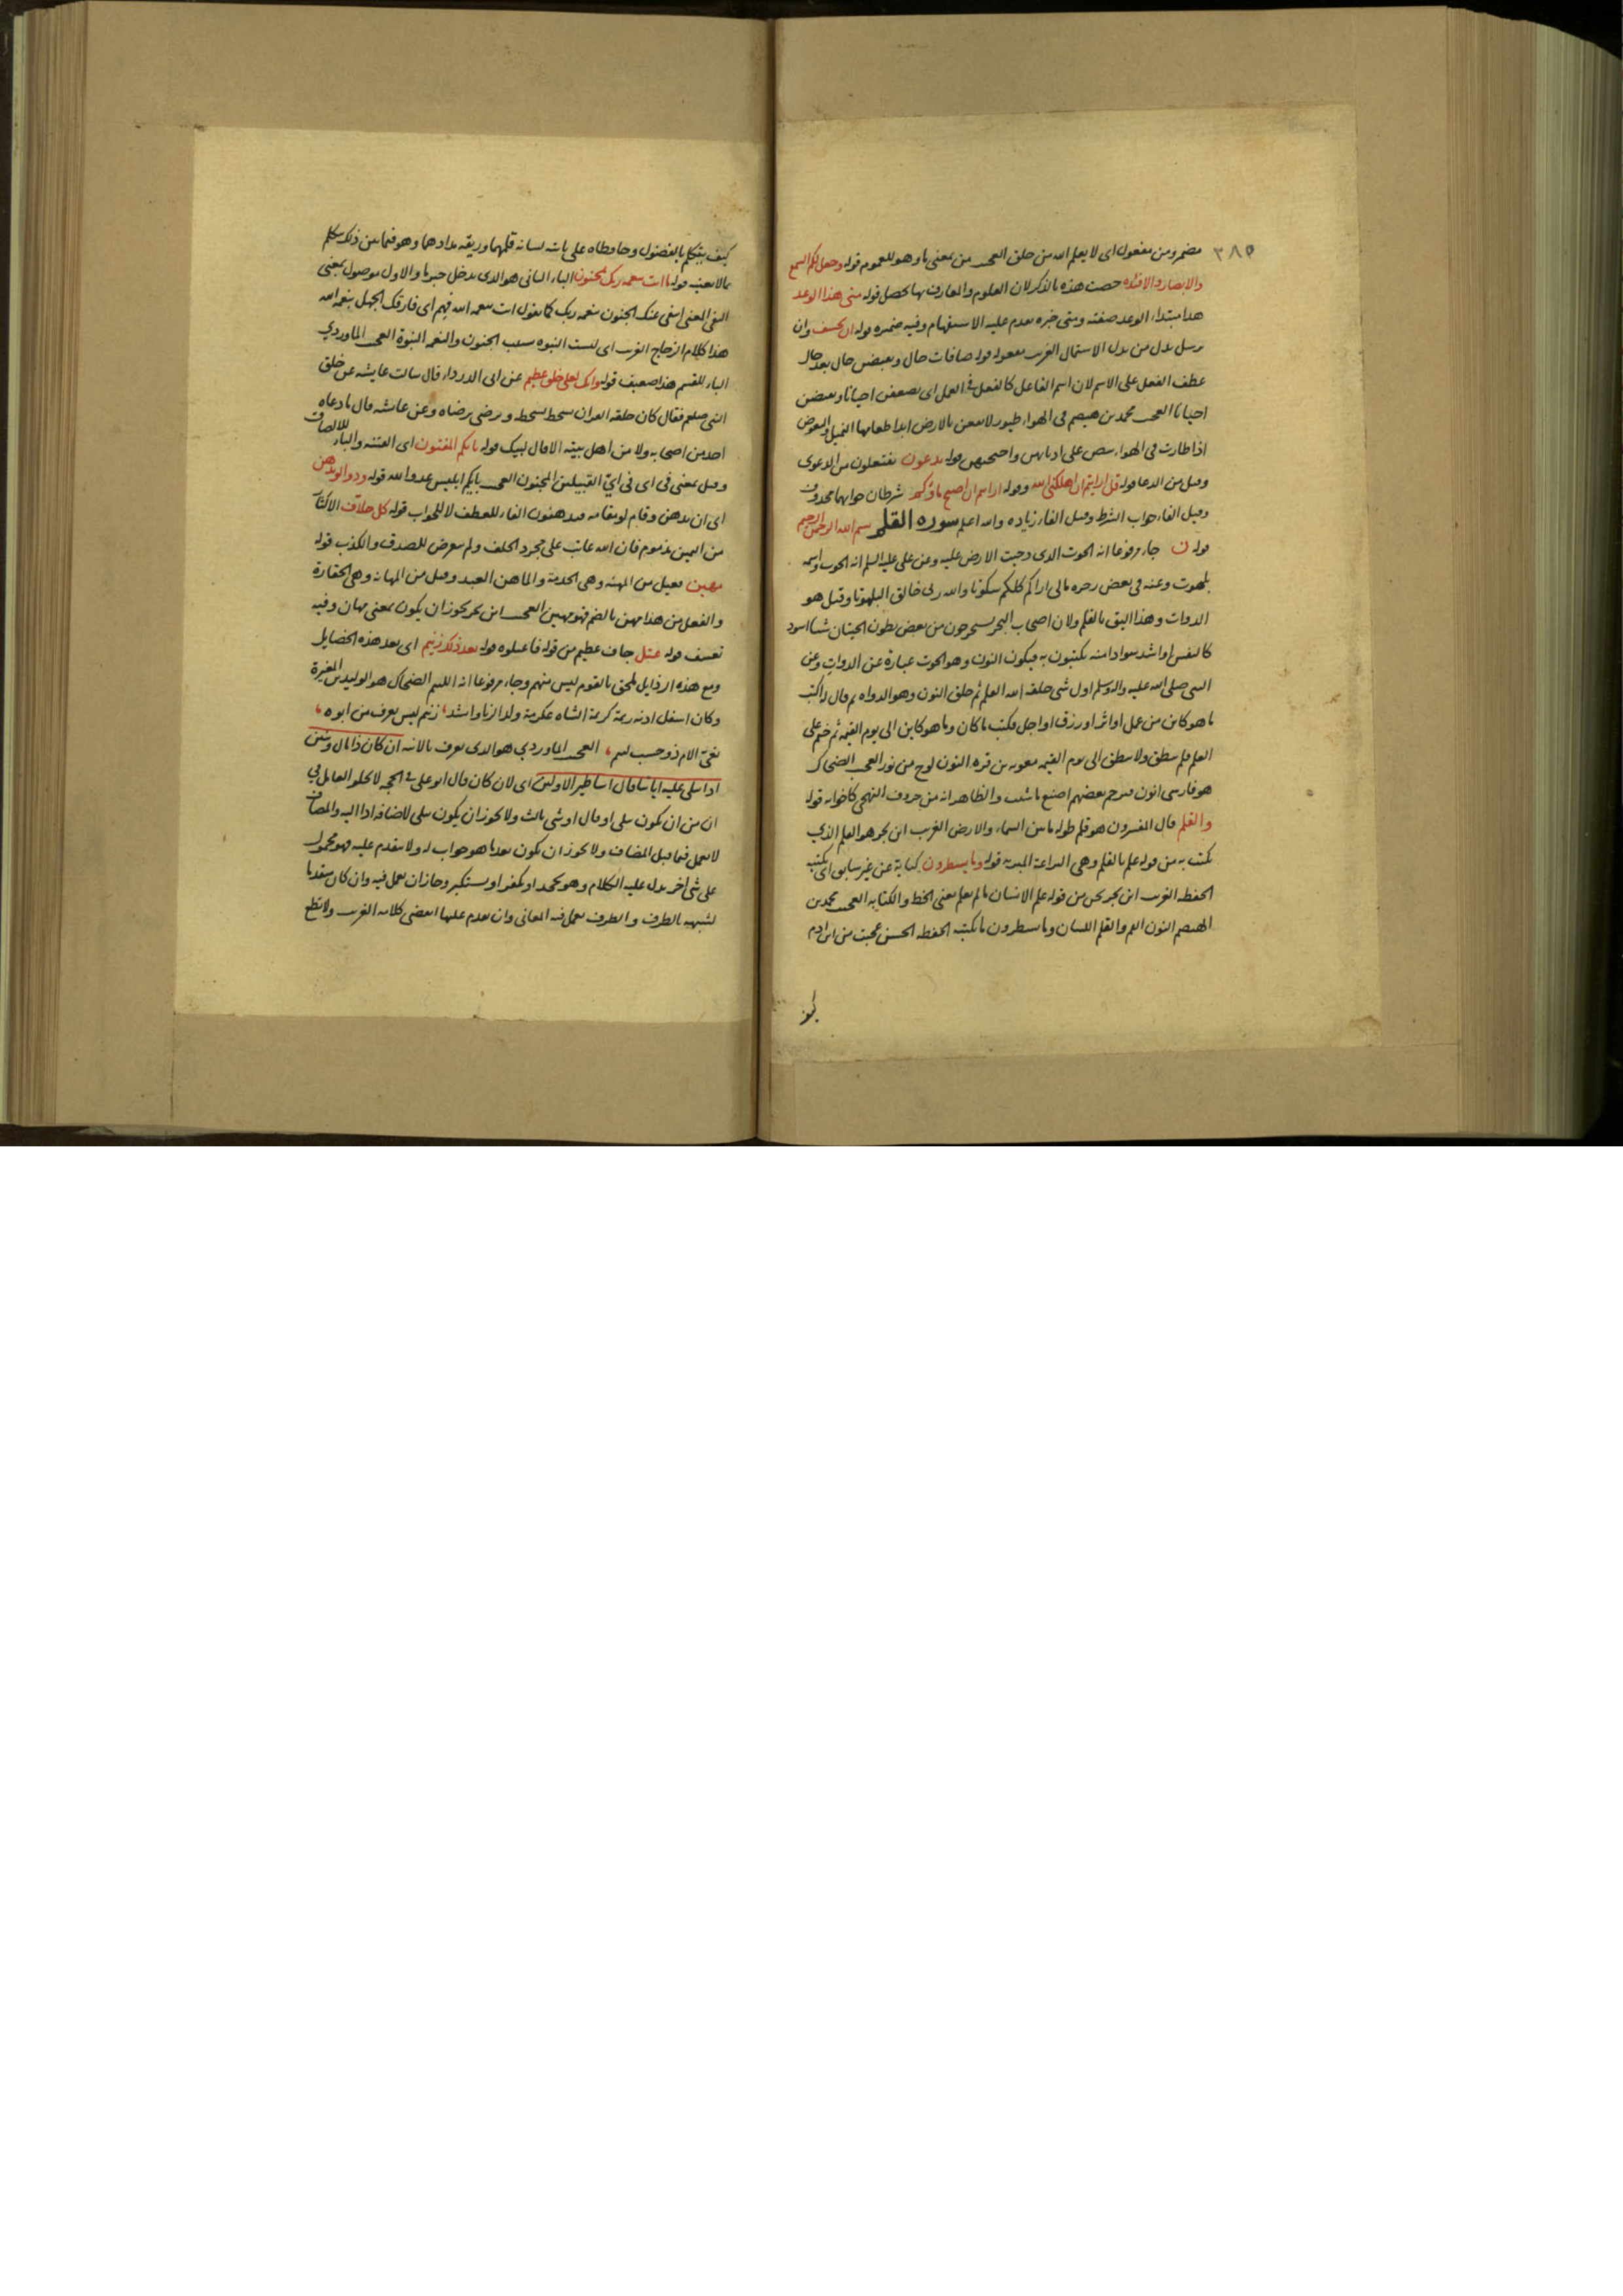 ٣٨٥
مضمر ومن مفعول اى لا يعلم الله من خلق العجيب من بمعنى ما وهو للعموم قوله وجعل لكم السمع
والابصار والافئدة خصت هذه بالذكر لان العلوم والمعارف بها تحصل قوله متى هذا الوعد
هذا مبتداء الوعد صفته ومتى خبره تقدم عليه الاستفهام وفيه ضميره قوله ان يخسف وان
يرسل بدل من بدل الاشتمال الغريب مفعوله قوله صافات حال ويقبضن حال بعد حال
عطف الفعل على الاسم لان اسم الفاعل كالفعل فى العمل اى يصففن احيانا ويقبضن
احيانا العجيب محمد بن هيصم فى الهواء طيور لا تقعن بالارض ابدا طعامها النمل والبعوض
اذا طارت فى الهواء تبيض على اذنابهن واجنحتهن قوله تدعون تفتعلون من الدعوى
وقيل من الدعا قوله قل ارايتم ان اهلكنى الله وقوله ارايتم ان اصبح ماؤكم شرطان جوابهما محذوف
وقيل الفاء جواب الشرط وقيل الفاء زيادة والله اعلم سورة القلم بسم الله الرحمن الرحيم
قوله ن جاء مرفوعا انه الحوت الذى دحيت الارض عليه وعن على عليه السلم انه الحوت واسمه
بلهوت وعنه فى بعض رجزه مالى اراكم كلكم سكوتا والله ربى خالق البلهوتا وقيل هو
الدوات وهذا اليق بالقلم ولان اصحاب البحر يستخرجون من بعض بطون الحيتان شيا اسود
كالنقس او اشد سوادا منه يكتبون به فيكون النون وهو الحوت عبارة عن الدوات وعن
النبى صلى الله عليه واله وسلم اول شى خلقه الله القلم ثم خلق النون وهو الدواه ثم قال له اكتب
ما هو كائن من عمل او اثر او رزق او اجل فكتب ما كان وما هو كاين الى يوم القيمه ثم ختم على
القلم فلم ينطق ولا ينطق الى يوم القيمه معويه بن قره النون لوح من نور العجيب الضحاك
هو فارسى انون مترجم بعضهم اصنع ما شيت والظاهر انه من حروف التهجى كاخواته قوله
والقلم قال المفسرون هو قلم طوله ما بين السماء والارض الغريب ابن بحر هو القلم الذي
يكتب به من قوله علم بالقلم وهى اليراعة المبرية قوله وما يسطرون كناية عن غير سابق اى يكتبه
الحفظه الغريب ابن بحر من قوله علم الانسان ما لم يعلم يعنى الخط والكتابه العجيب محمد بن
الهيصم النون الفم والقلم اللسان وما يسطرون ما يكتبه الحفظه الحسن عجبت من ابن ادم
كيف
كيف يتكلم بالفضول وحافظاه على نابه لسانه قلمهما وريقه مدادهما وهو فيما بين ذلك يتكلم
بما لا يعنيه قوله ما انت بنعمه ربك بمجنون الباء الثانى هو الذى يدخل خبر ما والاول موصول بمعنى
النفى المعنى انتفى عنك الجنون بنعمه ربك كما تقول انت بنعمه الله فهم اى فارقك الجهل بنعمه الله
هذا كلام الزجاج الغريب اى ليست النبوه سبب الجنون والنعمه النبوة العجيب الماوردي
الباء للقسم هذا ضعيف قوله وانك لعلى خلق عظيم عن ابى الدرداء قال سالت عايشه عن خلق
النبى صلعم فقال كان خلقه القران يسخط لسخطه ويرضى برضاه وعن عائشه قال ما دعاه
احد من اصحابه ولا من اهل بيته الا قال لبيك قوله بايكم المفتون اى الفتنه والباء للالصاق
وقيل بمعنى فى اى فى ايّ القبيلتين المجنون العجيب بايكم ابليس عدو الله قوله ودوا لو تدهن
اى ان تدهن وقام لو مقامه فيدهنون الفاء للعطف لا للجواب قوله كل حلاف الاكثار
من اليمين مذموم فان الله عاتب على مجرد الحلف ولم يتعرض للصدق والكذب قوله
مهين فعيل من المهنه وهى الخدمة والماهن العبد وقيل من المهانه وهى الحقارة
والفعل من هذا مهن بالضم فهو مهين العجيب ابن بحر يجوز ان يكون بمعنى مهان وفيه
تعسف قوله عتل جاف عظيم من قوله فاعتلوه قوله بعد ذلك زنيم اى بعد هذه الخصايل
ومع هذه الرذايل ملحق بالقوم ليس منهم وجاء مرفوعا انه اللئيم الضحاك هو الوليد بن المغيرة
وكان اسفل اذنه زنمة كزنمة الشاه عكرمة ولد الزنا وانشد، زنيم ليس يعرف من ابوه،
بغىّ الام ذو حسب لئيم، العجيب الماوردي هو الذى يعرف بالابنه ان كان ذا مال وبنين
اذا تتلى عليه اياتنا قال اساطير الاولين اى لان كان قال ابو على فى الحجه لا يخلو العامل فى
ان من ان يكون تتلى او قال او شى ثالث ولا يجوز ان يكون تتلى لاضافه اذا اليه والمضاف
لا يعمل فيما قبل المضاف ولا يجوز ان يكون بعدما هو جواب له ولا يتقدم عليه فهو محمول
على شى اخر يدل عليه الكلام وهو يجحد او يكفر او يستكبر وجاز ان يعمل فيه وان كان متقدما
لشبهه بالظرف والظرف يعمل فيه المعانى وان تقدم عليها انقضى كلامه الغريب ولا تطع